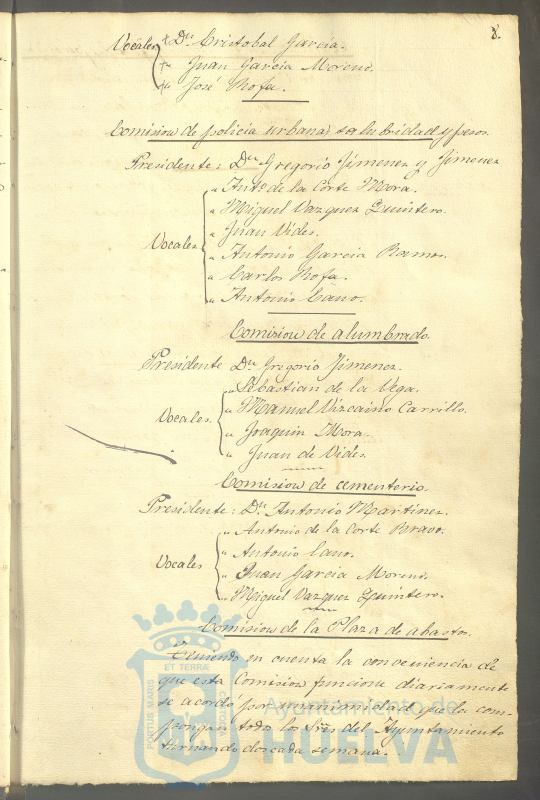 8.
Vocales Dn Cristobal Garcia.
" Juan Garcia Moreno.
" José Rofa.
Comision de policia urbana, salubridad y pesos
Presidente: Dn Gregorio Jimenez y Jimenez
" Anto de la Corte Mora.
" Miguel Vazquez Quintero.
" Juan Vides.
Vocales " Antonio Garcia Ramos.
" Carlos Rofa.
" Antonio Cano.
Comision de alumbrado.
Presidente Dn Gregorio Jimenez.
" Sebastian de la Vega.
" Manuel Vizcaino Carrillo.
Vocales " Joaquin Mora.
" Juan de Vides.
Comision de cementerio.
Presidente: Dn Antonio Martinez.
" Antonio de la Corte Bravo.
" Antonio Cano.
Vocales " Juan Garcia Moreno.
" Miguel Vazquez Quintero.
Comision de la Plaza de abastos.
Teniendo en cuenta la conveniencia de
que esta Comision funcione diariamente
se acordó por unanimidad que la com-
pongan todos los Sres del Ayuntamiento
turnando dos cada semana.
ET TERRÆ
PORTUS MARIS
CUSTODIA
Ayuntamiento de
HUELVA